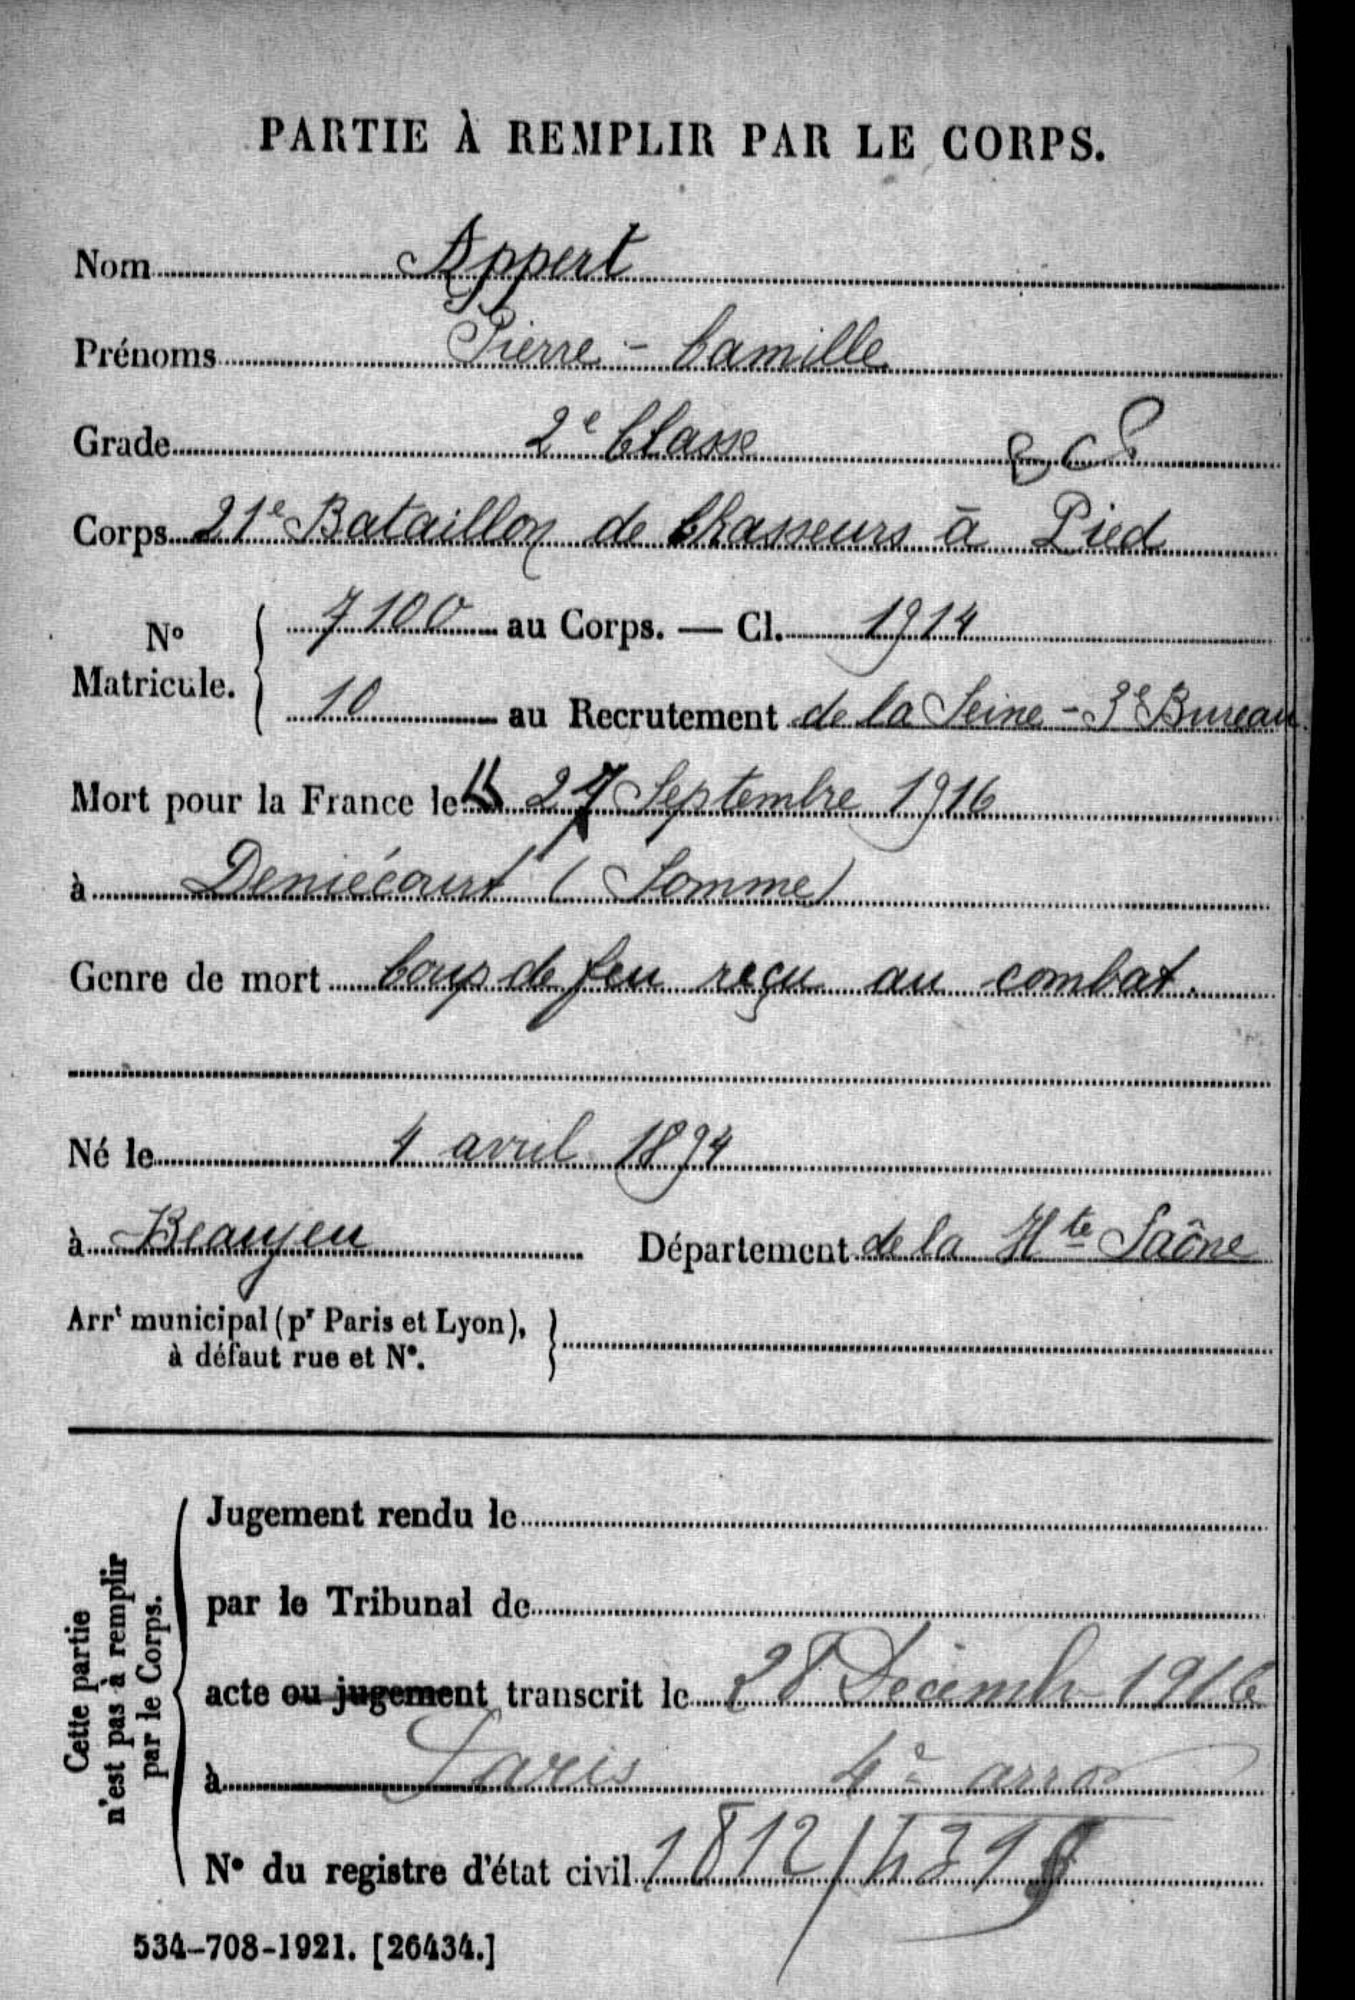 PARTIE À REMPLIR PAR LE CORPS.
Nom Appert
Prénoms Pierre - Camille
Grade 2e Classe
Corps 21e Bataillon de Chasseurs à Pied
No Matricule. { 7100 au Corps. — Cl. 1914
10 au Recrutement de la Seine - 3e Bureau
Mort pour la France le 27 Septembre 1916
à Deniécourt (Somme)
Genre de mort Coup de feu reçu au combat.
Né le 4 avril 1894
à Beaujeu Département de la Hte Saône
Arrt municipal (pr Paris et Lyon), à défaut rue et No. }
Cette partie n'est pas à remplir par le Corps.
Jugement rendu le
par le Tribunal de
acte ou jugement transcrit le 28 Décembr 1916
à Paris 4e arrot
No du registre d'état civil 1812/
534-708-1921. [26434.]